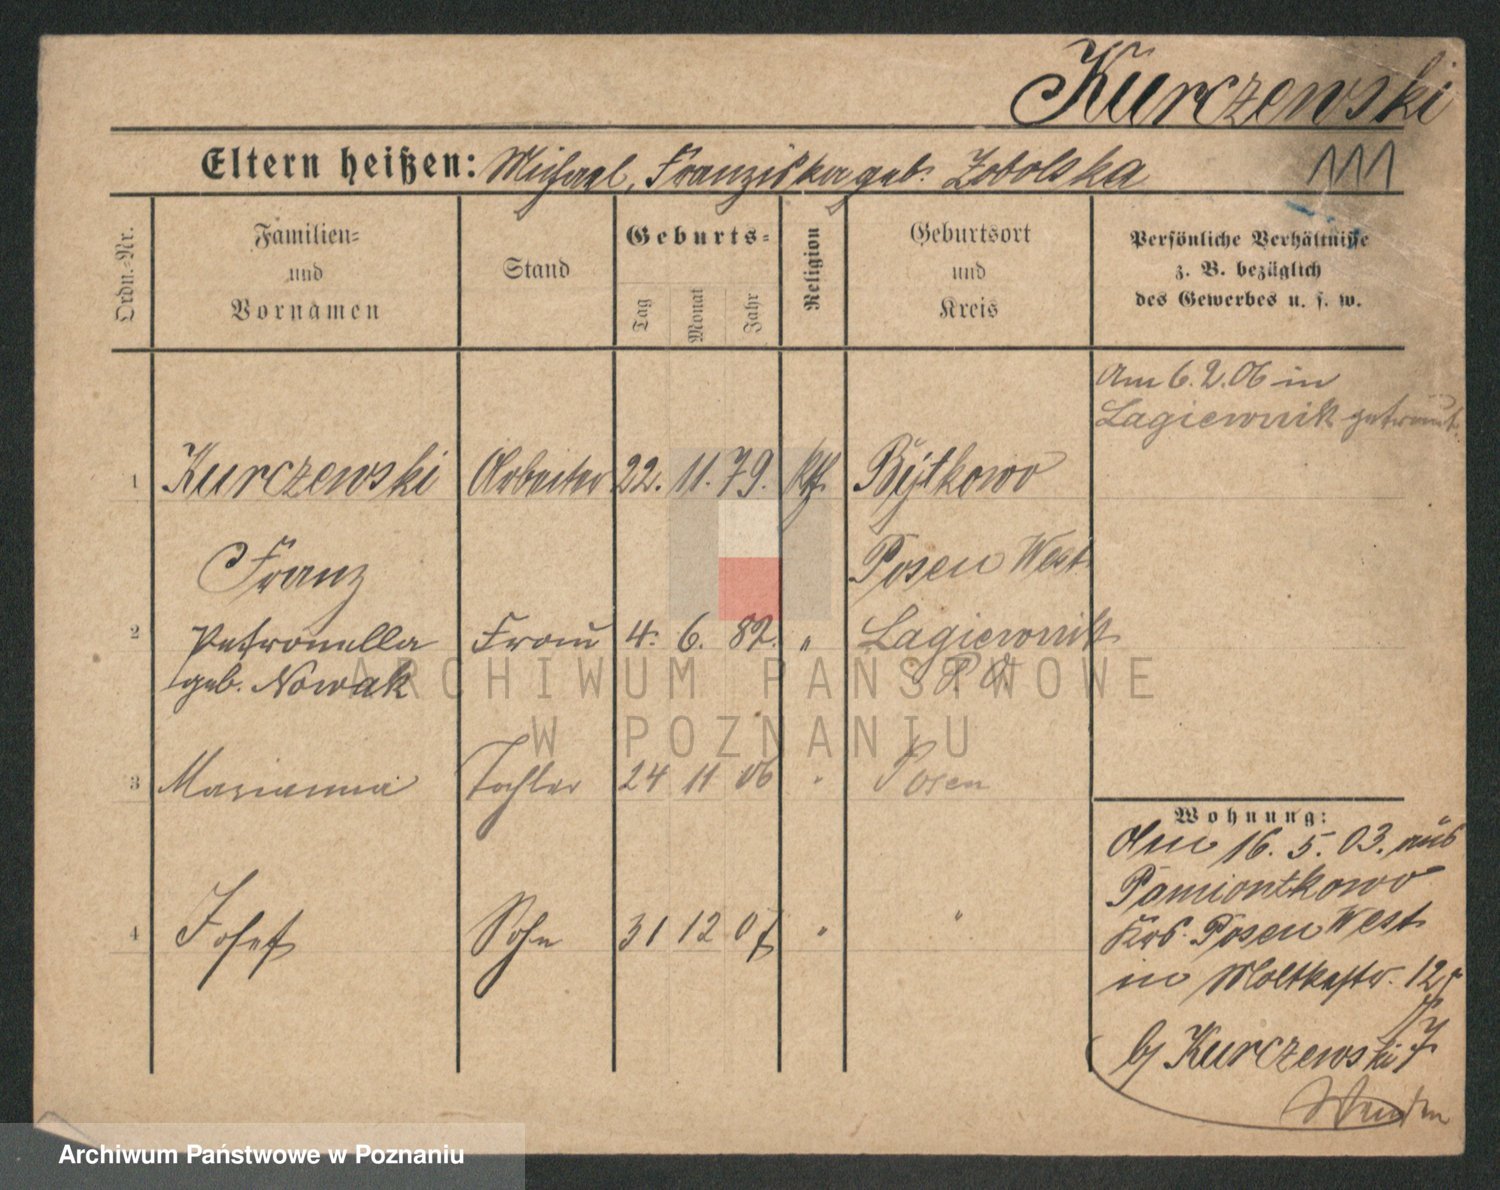 Kurczewski
Eltern heißen: Michael, Franziska geb. Zobolska
Ordn.-Nr.
Familien-
und
Vornamen
Stand
Geburts-
Tag
Monat
Jahr
Religion
Geburtsort
und
Kreis
Persönliche Verhältnisse
z. B. bezüglich
des Gewerbes u. s. w.
Am 6.2.06 in
Lagiewnik getraut.
1 Kurczewski Arbeiter 22. 11. 79. kth. Bytkowo
Franz Posen West
2 Petronella Frau 4. 6. 82. " Lagiewnik
geb. Nowak
3 Marianna Tochter 24 11 06 " Posen
4 Josef Sohn 31 12 07 " "
Wohnung:
Am 16. 5. 03. aus
Pamiontkowo
Krs. Posen West
in Moltkestr. 12
b/ Kurczewski
Wenden
ARCHIWUM PAŃSTWOWE
W POZNANIU
Archiwum Państwowe w Poznaniu